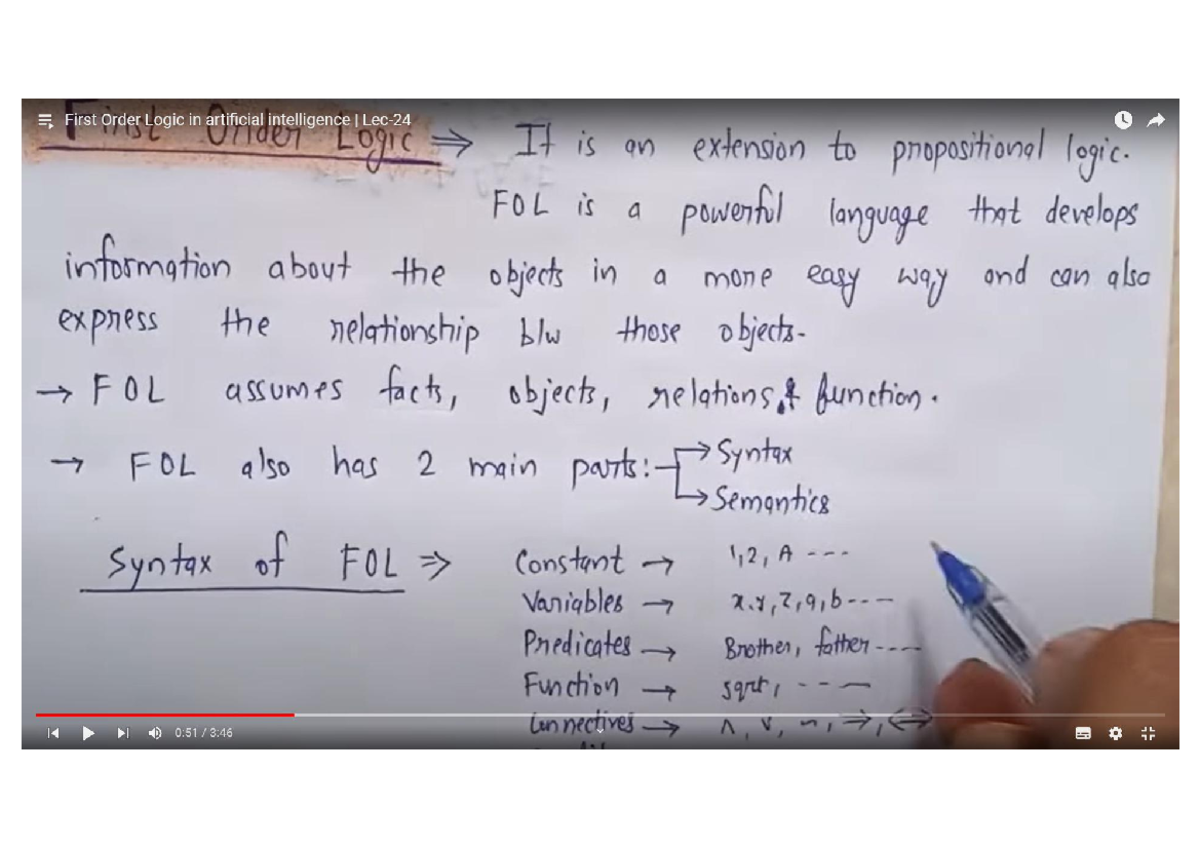 First Order Logic in artificial intelligence | Lec-24
First Order Logic ⇒ It is an extension to propositional logic.
FOL is a powerful language that develops
information about the objects in a more easy way and can also
express the relationship b/w those objects.
→ FOL assumes facts, objects, relations & function.
→ FOL also has 2 main parts: → Syntax
→ Semantics
Syntax of FOL ⇒ Constant → 1, 2, A ---
Variables → x, y, z, a, b ----
Predicates → Brother, father ----
Function → sqrt, ---
Connectives → ∧, ∨, ¬, ⇒, ⇔
0:51 / 3:46